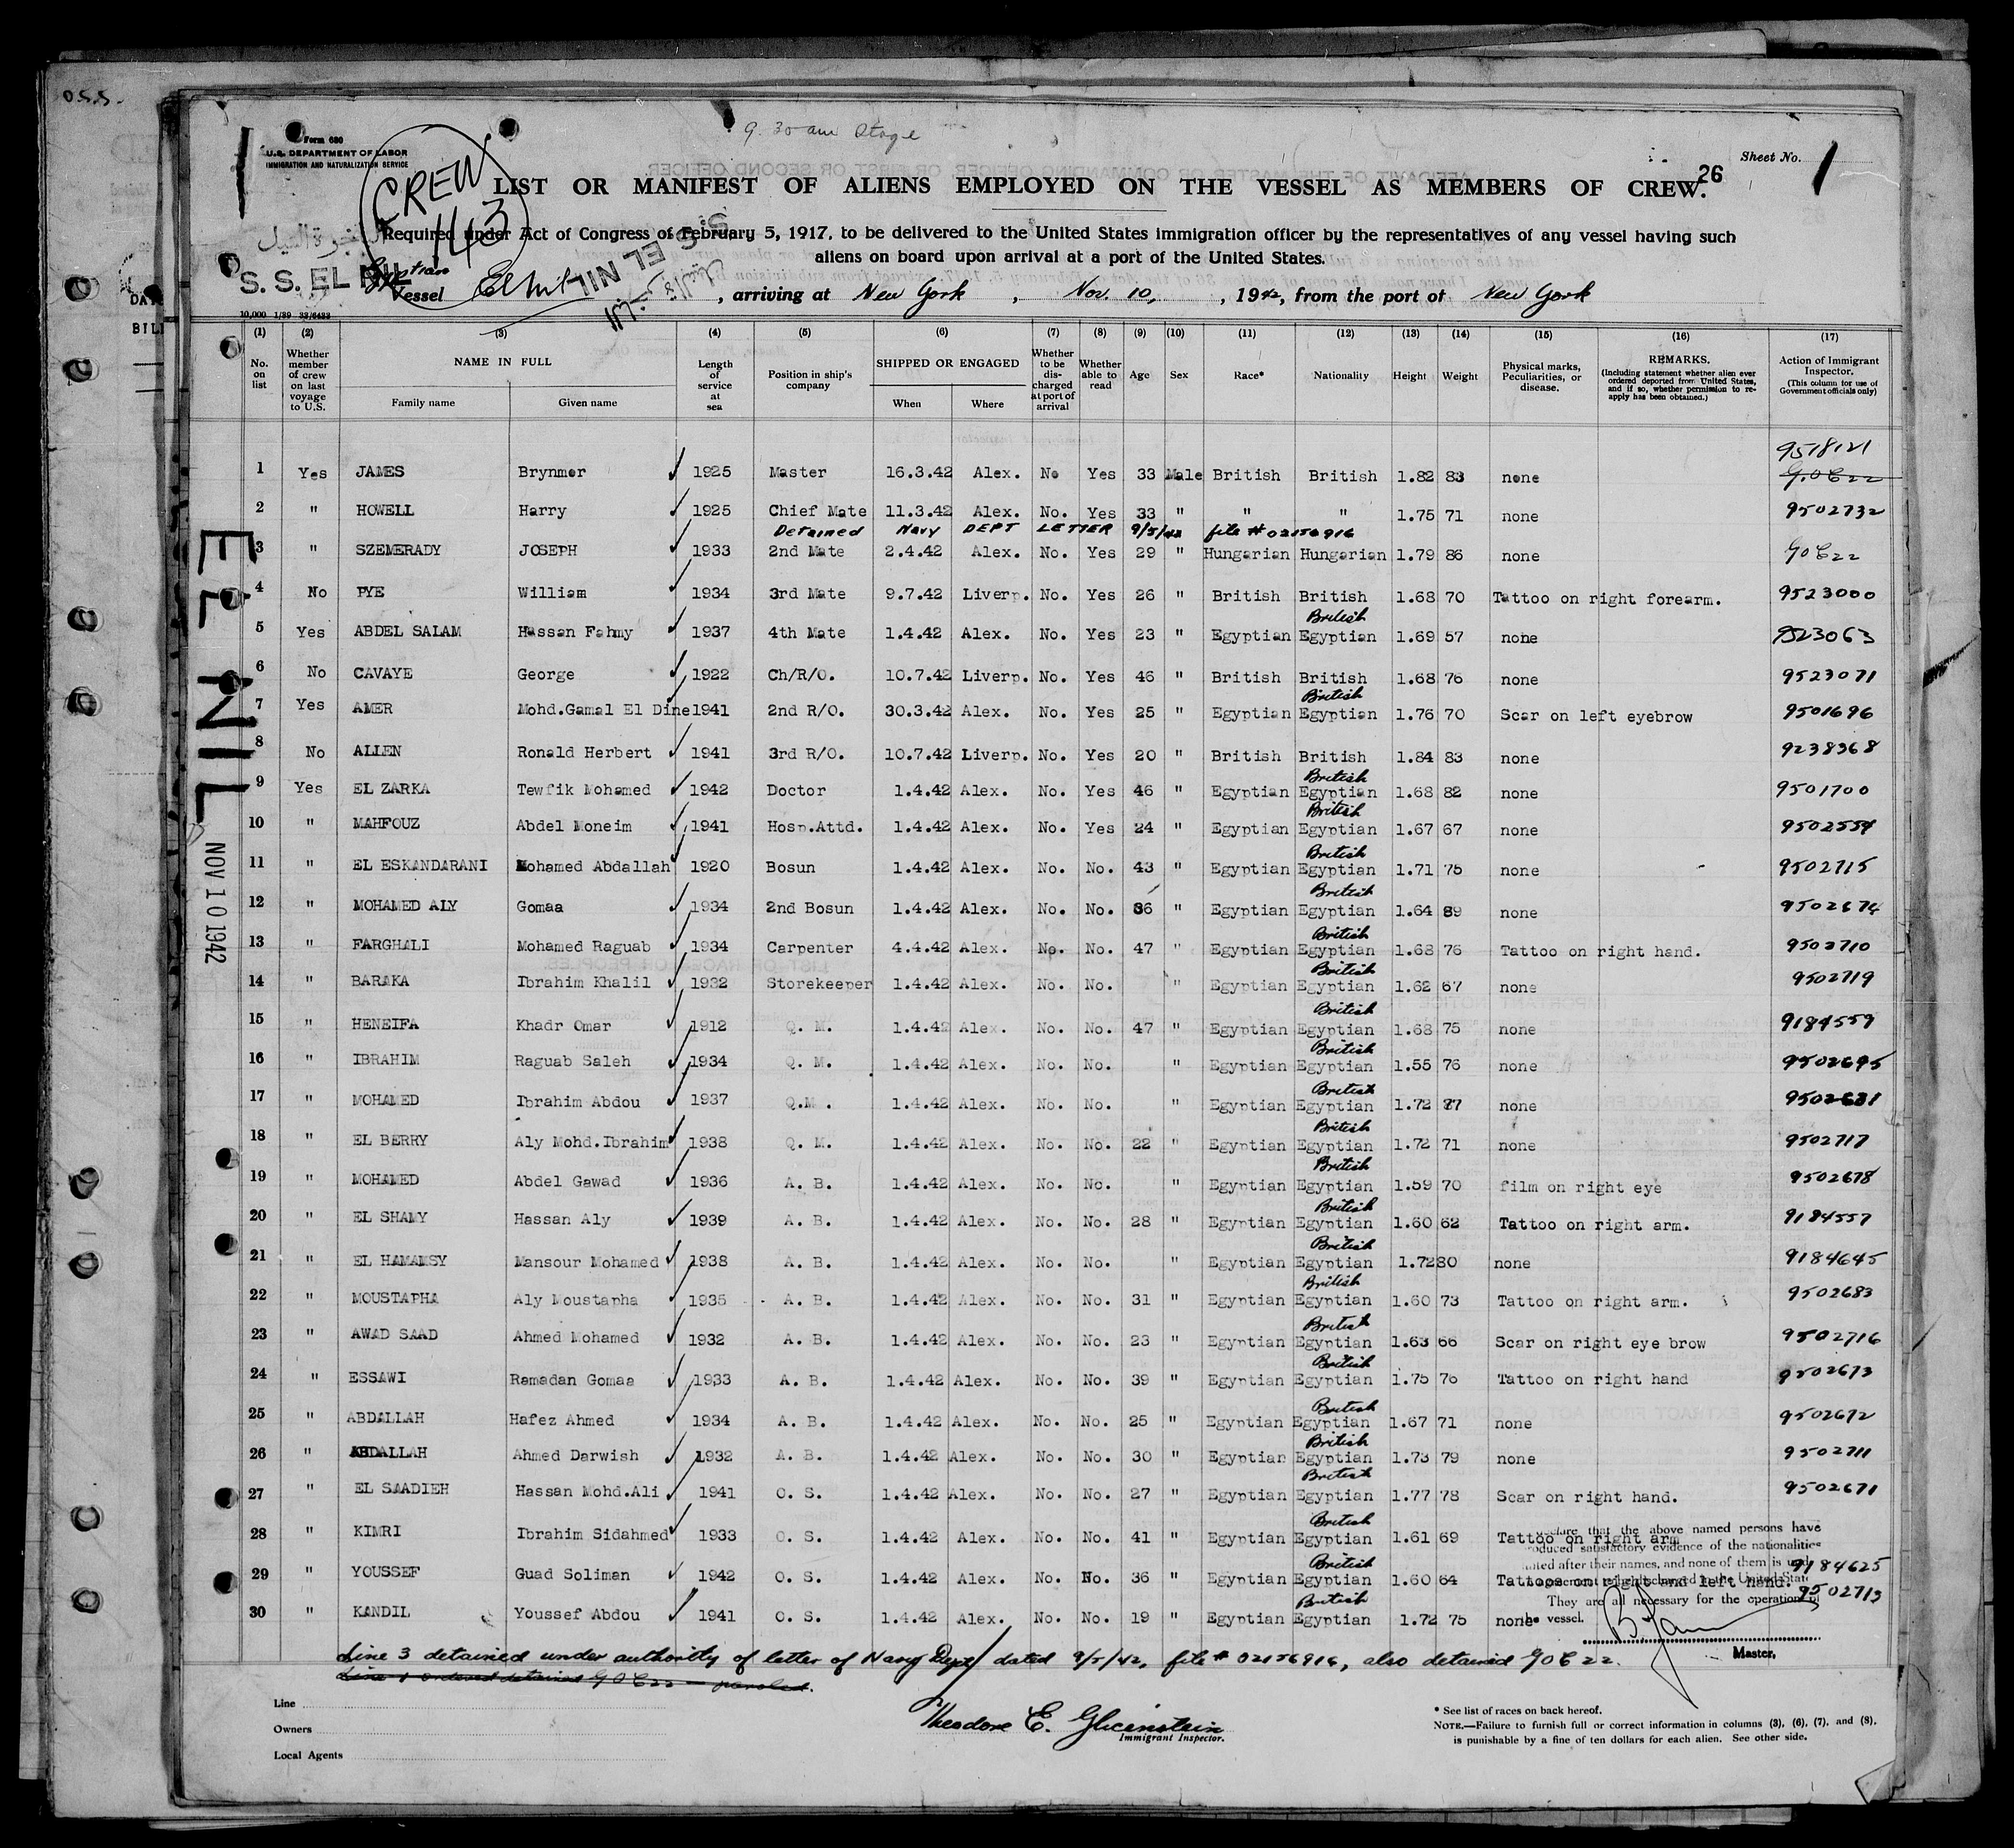 O.S.S.
9.30 am Stage
Form 680
U.S. DEPARTMENT OF LABOR
IMMIGRATION AND NATURALIZATION SERVICE
CREW
143
Sheet No. 1
26
LIST OR MANIFEST OF ALIENS EMPLOYED ON THE VESSEL AS MEMBERS OF CREW.
Required under Act of Congress of February 5, 1917, to be delivered to the United States immigration officer by the representatives of any vessel having such
aliens on board upon arrival at a port of the United States.
S. S. EL NIL
S. S. EL NIL
Egyptian
Vessel El Nil, arriving at New York, Nov. 10, 1942, from the port of New York
10,000 1/39 33/6433
(1) (2) (3) (4) (5) (6) (7) (8) (9) (10) (11) (12) (13) (14) (15) (16) (17)
No. on list
Whether member of crew on last voyage to U.S.
NAME IN FULL
Family name Given name
Length of service at sea
Position in ship's company
SHIPPED OR ENGAGED
When Where
Whether to be discharged at port of arrival
Whether able to read
Age Sex Race* Nationality Height Weight
Physical marks, Peculiarities, or disease.
REMARKS.
(Including statement whether alien ever ordered deported from United States, and if so, whether permission to reapply has been obtained.)
Action of Immigrant Inspector.
(This column for use of Government officials only)
9518121
1 Yes JAMES Brynmor 1925 Master 16.3.42 Alex. No Yes 33 Male British British 1.82 83 none G.O.C22
2 " HOWELL Harry 1925 Chief Mate 11.3.42 Alex. No. Yes 33 " " " 1.75 71 none 9502732
Detained Navy DEPT LETTER 9/5/42 file # 02156916
3 " SZEMERADY JOSEPH 1933 2nd Mate 2.4.42 Alex. No. Yes 29 " Hungarian Hungarian 1.79 86 none GOC22
4 No PYE William 1934 3rd Mate 9.7.42 Liverp. No. Yes 26 " British British 1.68 70 Tattoo on right forearm. 9523000
British
5 Yes ABDEL SALAM Hassan Fahmy 1937 4th Mate 1.4.42 Alex. No. Yes 23 " Egyptian Egyptian 1.69 57 none 9523063
6 No CAVAYE George 1922 Ch/R/O. 10.7.42 Liverp. No. Yes 46 " British British 1.68 76 none 9523071
British
7 Yes AMER Mohd.Gamal El Dine 1941 2nd R/O. 30.3.42 Alex. No. Yes 25 " Egyptian Egyptian 1.76 70 Scar on left eyebrow 9501696
8 No ALLEN Ronald Herbert 1941 3rd R/O. 10.7.42 Liverp. No. Yes 20 " British British 1.84 83 none 9238368
British
9 Yes EL ZARKA Tewfik Mohamed 1942 Doctor 1.4.42 Alex. No. Yes 46 " Egyptian Egyptian 1.68 82 none 9501700
British
10 " MAHFOUZ Abdel Moneim 1941 Hosp.Attd. 1.4.42 Alex. No. Yes 24 " Egyptian Egyptian 1.67 67 none 9502554
British
11 " EL ESKANDARANI Mohamed Abdallah 1920 Bosun 1.4.42 Alex. No. No. 43 " Egyptian Egyptian 1.71 75 none 9502715
British
12 " MOHAMED ALY Gomaa 1934 2nd Bosun 1.4.42 Alex. No. No. 36 " Egyptian Egyptian 1.64 89 none 9502674
British
13 " FARGHALI Mohamed Raguab 1934 Carpenter 4.4.42 Alex. No. No. 47 " Egyptian Egyptian 1.68 76 Tattoo on right hand. 9502710
British
14 " BARAKA Ibrahim Khalil 1932 Storekeeper 1.4.42 Alex. No. No. " Egyptian Egyptian 1.62 67 none 9502719
British
15 " HENEIFA Khadr Omar 1912 Q. M. 1.4.42 Alex. No. No. 47 " Egyptian Egyptian 1.68 75 none 9184559
British
16 " IBRAHIM Raguab Saleh 1934 Q. M. 1.4.42 Alex. No. No. " Egyptian Egyptian 1.55 76 none 9502695
British
17 " MOHAMED Ibrahim Abdou 1937 Q.M. 1.4.42 Alex. No. No. " Egyptian Egyptian 1.72 87 none 9502681
British
18 " EL BERRY Aly Mohd.Ibrahim 1938 Q. M. 1.4.42 Alex. No. No. 22 " Egyptian Egyptian 1.72 71 none 9502717
British
19 " MOHAMED Abdel Gawad 1936 A. B. 1.4.42 Alex. No. No. " Egyptian Egyptian 1.59 70 film on right eye 9502678
British
20 " EL SHAMY Hassan Aly 1939 A. B. 1.4.42 Alex. No. No. 28 " Egyptian Egyptian 1.60 62 Tattoo on right arm. 9184557
British
21 " EL HAMAMSY Mansour Mohamed 1938 A. B. 1.4.42 Alex. No. No. " Egyptian Egyptian 1.72 80 none 9184645
British
22 " MOUSTAPHA Aly Moustapha 1935 A. B. 1.4.42 Alex. No. No. 31 " Egyptian Egyptian 1.60 73 Tattoo on right arm. 9502683
British
23 " AWAD SAAD Ahmed Mohamed 1932 A. B. 1.4.42 Alex. No. No. 23 " Egyptian Egyptian 1.63 66 Scar on right eye brow 9502716
British
24 " ESSAWI Ramadan Gomaa 1933 A. B. 1.4.42 Alex. No. No. 39 " Egyptian Egyptian 1.75 76 Tattoo on right hand 9502673
British
25 " ABDALLAH Hafez Ahmed 1934 A. B. 1.4.42 Alex. No. No. 25 " Egyptian Egyptian 1.67 71 none 9502672
British
26 " ABDALLAH Ahmed Darwish 1932 A. B. 1.4.42 Alex. No. No. 30 " Egyptian Egyptian 1.73 79 none 9502711
British
27 " EL SAADIEH Hassan Mohd.Ali 1941 O. S. 1.4.42 Alex. No. No. 27 " Egyptian Egyptian 1.77 78 Scar on right hand. 9502671
British
28 " KIMRI Ibrahim Sidahmed 1933 O. S. 1.4.42 Alex. No. No. 41 " Egyptian Egyptian 1.61 69 Tattoo on right arm
British
29 " YOUSSEF Guad Soliman 1942 O. S. 1.4.42 Alex. No. No. 36 " Egyptian Egyptian 1.60 64 Tattoos on right and left hand. 9184625
British
30 " KANDIL Youssef Abdou 1941 O. S. 1.4.42 Alex. No. No. 19 " Egyptian Egyptian 1.72 75 none 9502713
that the above named persons have
satisfactory evidence of the nationalities
after their names, and none of them is
They are all necessary for the operation of
the vessel.
B. James
Master.
Line 3 detained under authority of letter of Navy Dept dated 9/5/42, file # 02156916, also detained GOC 22.
Line 1 ordered detained GOC22 — paroled.
Line
Owners
Local Agents
Theodore E. Glicenstein
Immigrant Inspector.
* See list of races on back hereof.
NOTE.—Failure to furnish full or correct information in columns (3), (6), (7), and (8),
is punishable by a fine of ten dollars for each alien. See other side.
EL NIL
NOV 10 1942